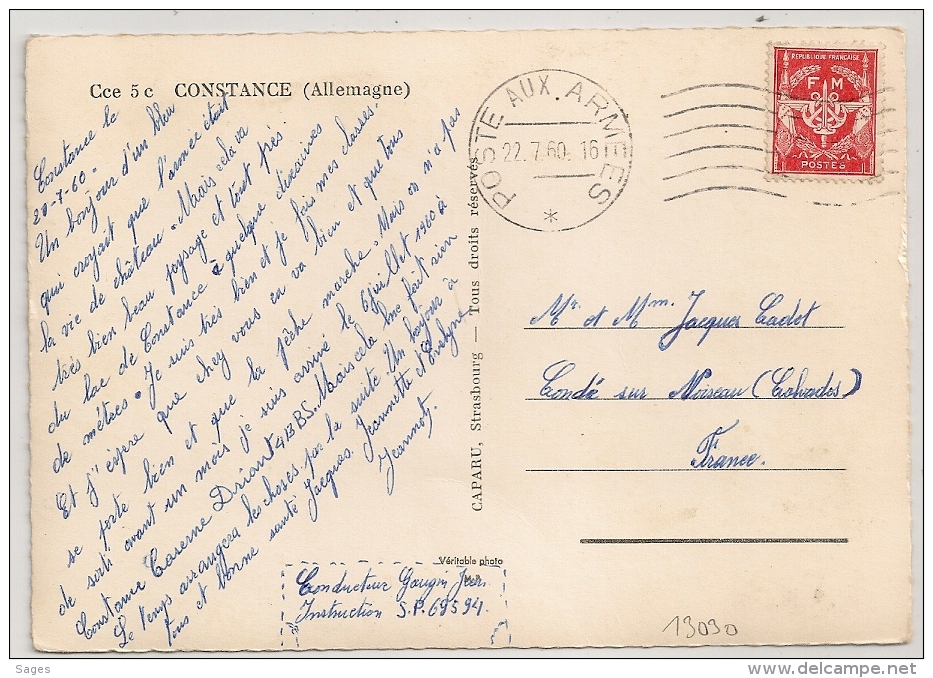 Cce 5 c CONSTANCE (Allemagne)
Constance le
20-7-60 -
Un bonjour d'un bleu
qui croyait que l'armée était
la vie de château. Mais cela va
très bien beau paysage et tout près
du lac de Constance à quelque dixaines
de mètres. Je suis très bien et je fais mes classes.
Et j'éspère que chez vous en va bien et que tous
se porte bien et que la pêche marche. Mais on n'a pas
de sorti avant un mois je suis arrivé le 6 juillet 1960 à
Constance Caserne Driant 4BBS. Mais cela me fait rien
Le temps arrangera les choses par la suite. Un bonjour à
tous et bonne santé Jacques. Jeannette et Evelyne
Jeannot.
Véritable photo
Conducteur Jean.
Instruction S.P. 69594.
CAPARU, Strasbourg — Tous droits réservés
POSTE AUX ARMEES
22.7.60. 16
*
REPUBLIQUE FRANÇAISE
F M
POSTES
Mr et Mme Jacques Cadet
Condé sur Noireau (Calvados)
France.
13090
Sages
www.delcampe.net